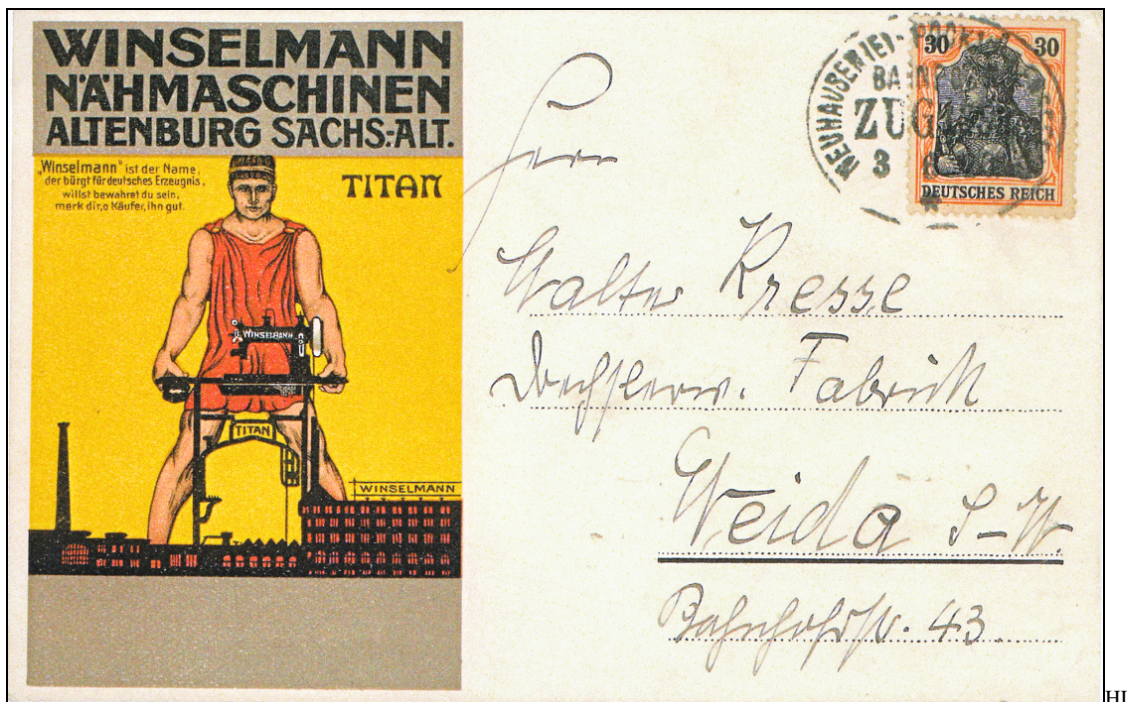 WINSELMANN
NÄHMASCHINEN
ALTENBURG SACHS.-ALT.
„Winselmann" ist der Name,
der bürgt für deutsches Erzeugnis,
willst bewahret du sein,
merk dir, o Käufer, ihn gut.
TITAN
WINSELMANN
TITAN
WINSELMANN
NEUHAUSEN
ZUG
3
30 30
DEUTSCHES REICH
Herrn
Walter Kresse
Fabrik
Weida S-W.
Bahnhofstr. 43.